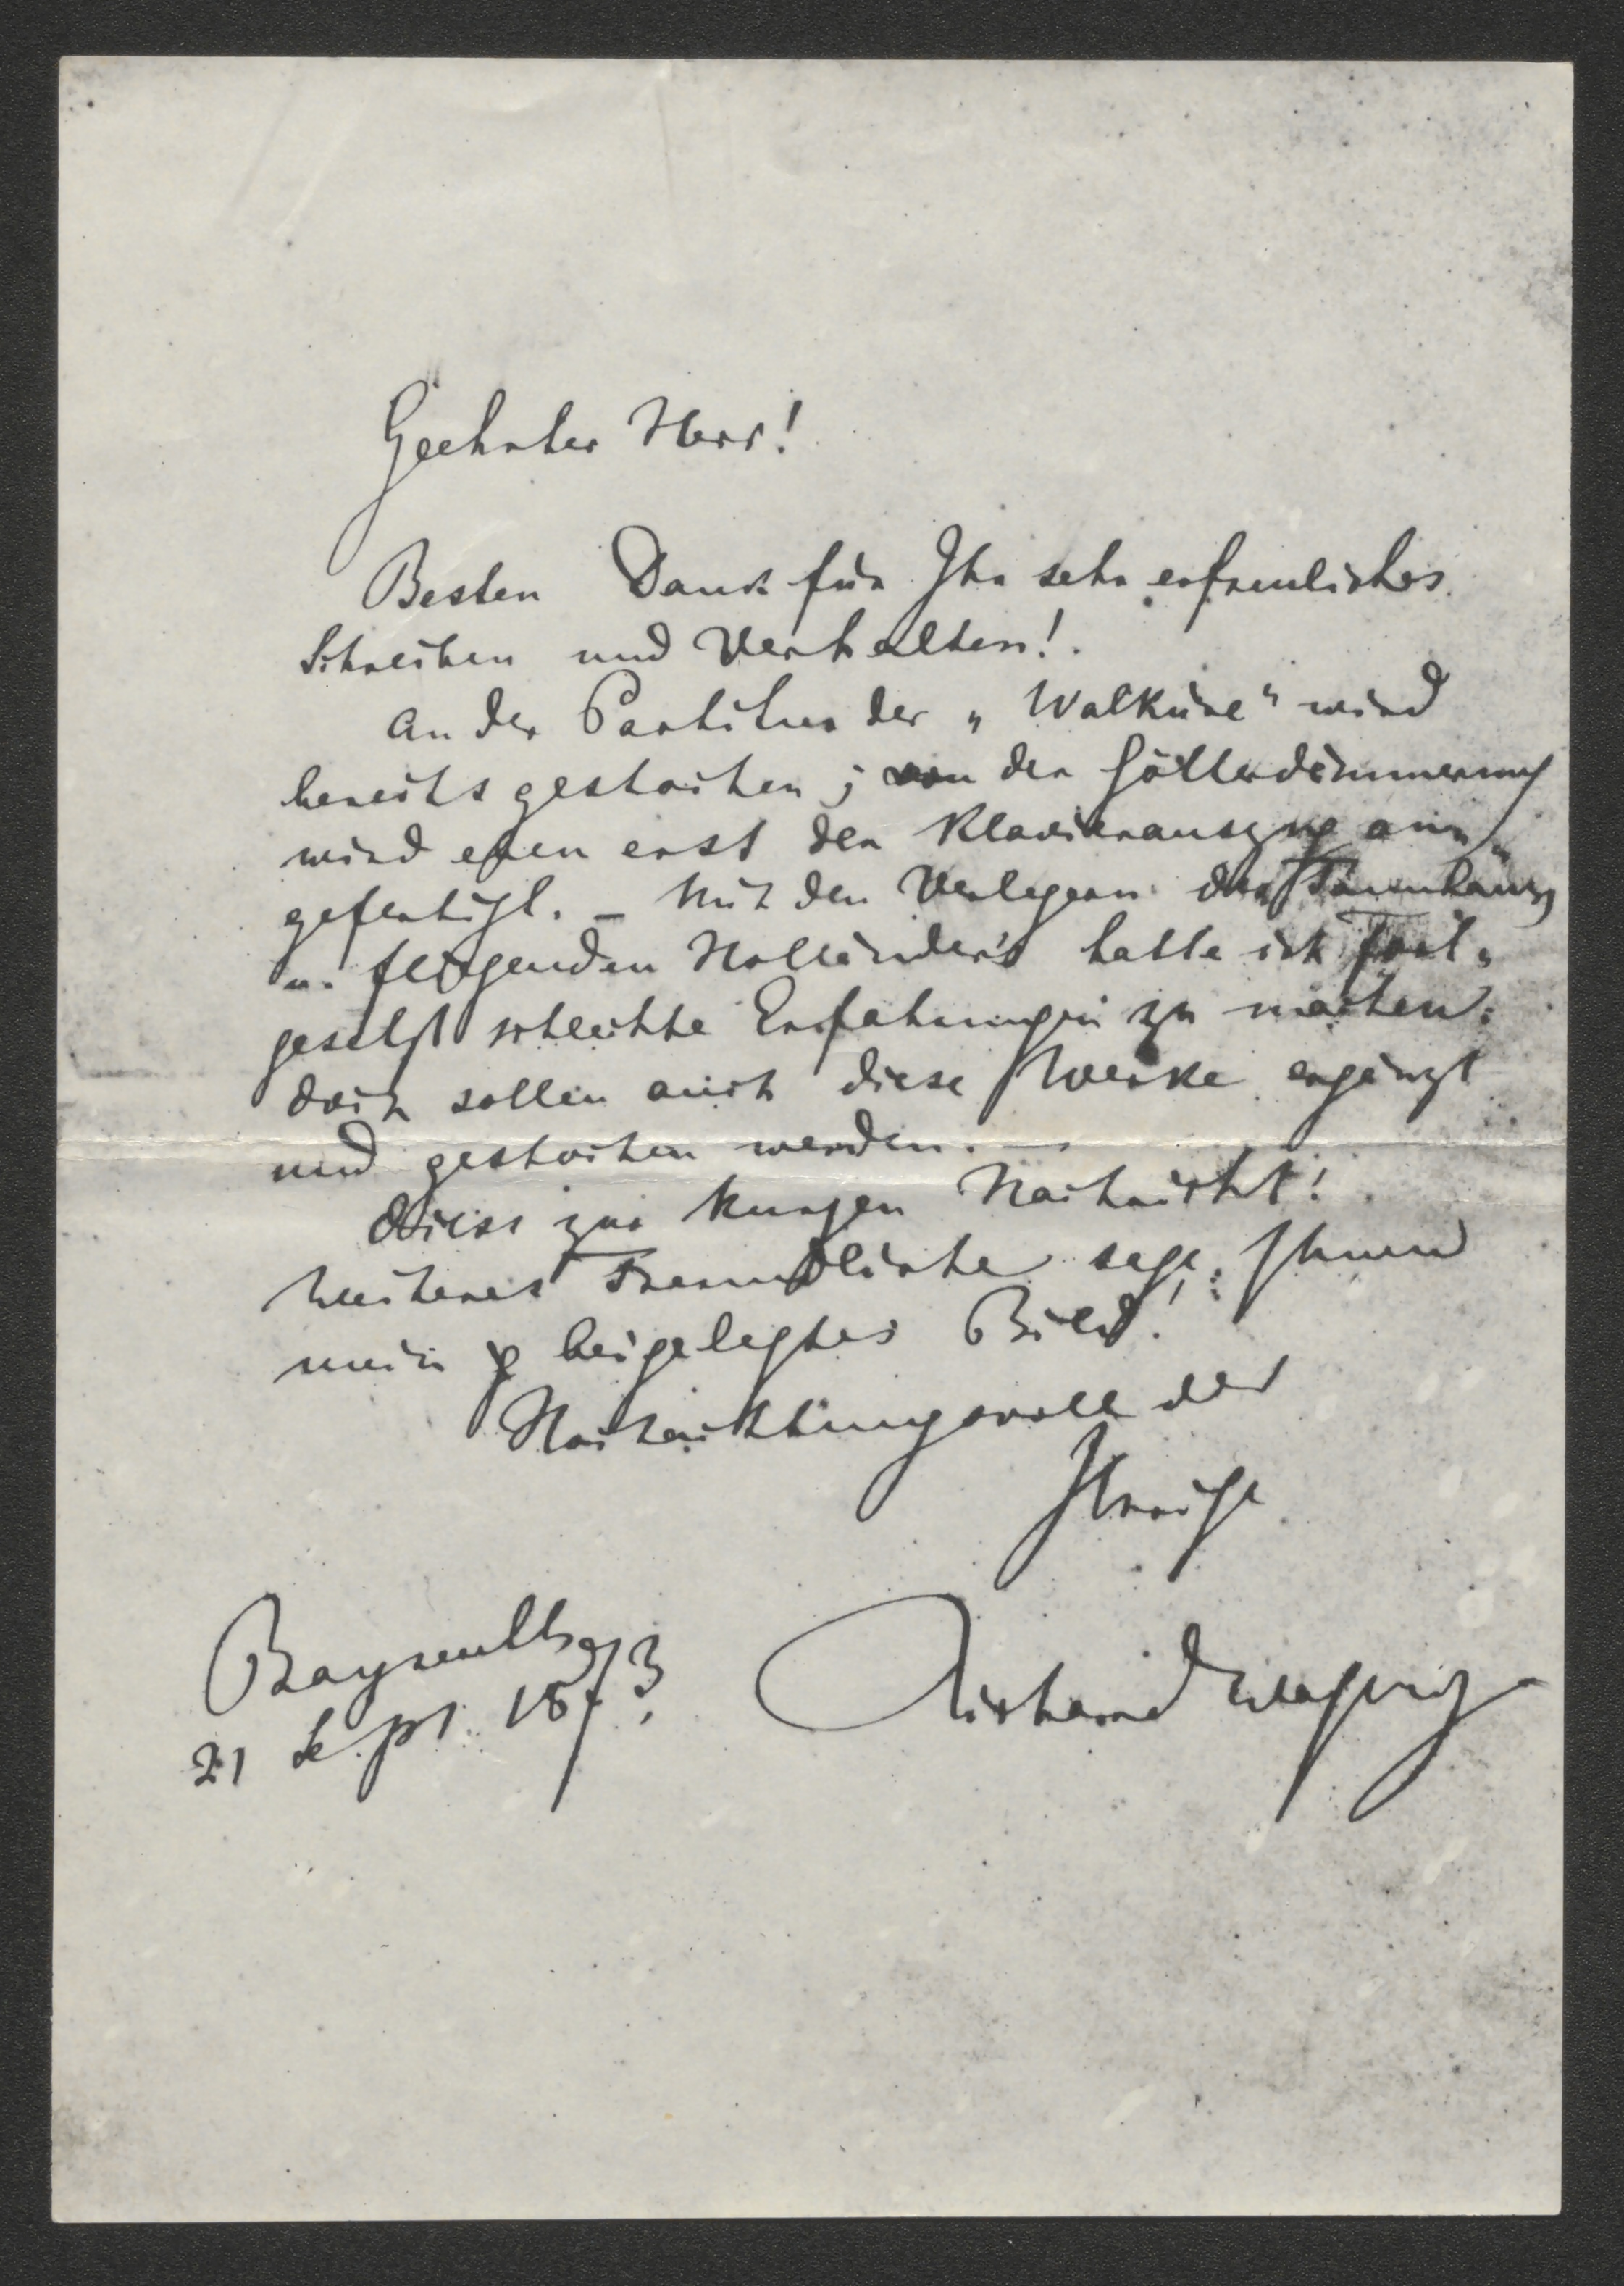 Geehrter Herr!
Besten Dank für Ihr sehr erfreuliches
Schreiben und Verhalten!
An der Partitur der „Walküre" wird
bereits gestochen; von der Götterdämmerung
wird eben erst der Klavierauszug an„
gefertigt. – Mit den Verlegern des Tannhäuser
u. fliegenden Holländer's hatte ich fort„
gesetzt schlechte Erfahrungen zu machen:
doch sollen auch diese Werke ergänzt
und gestochen werden. —
Diess zur kurzen Nachricht!
Weiteres Freundliche sage Ihnen
mein beigelegtes Bild!
Hochachtungsvoll der
Ihrige
Richard Wagner
Bayreuth
21 Sept. 1873.